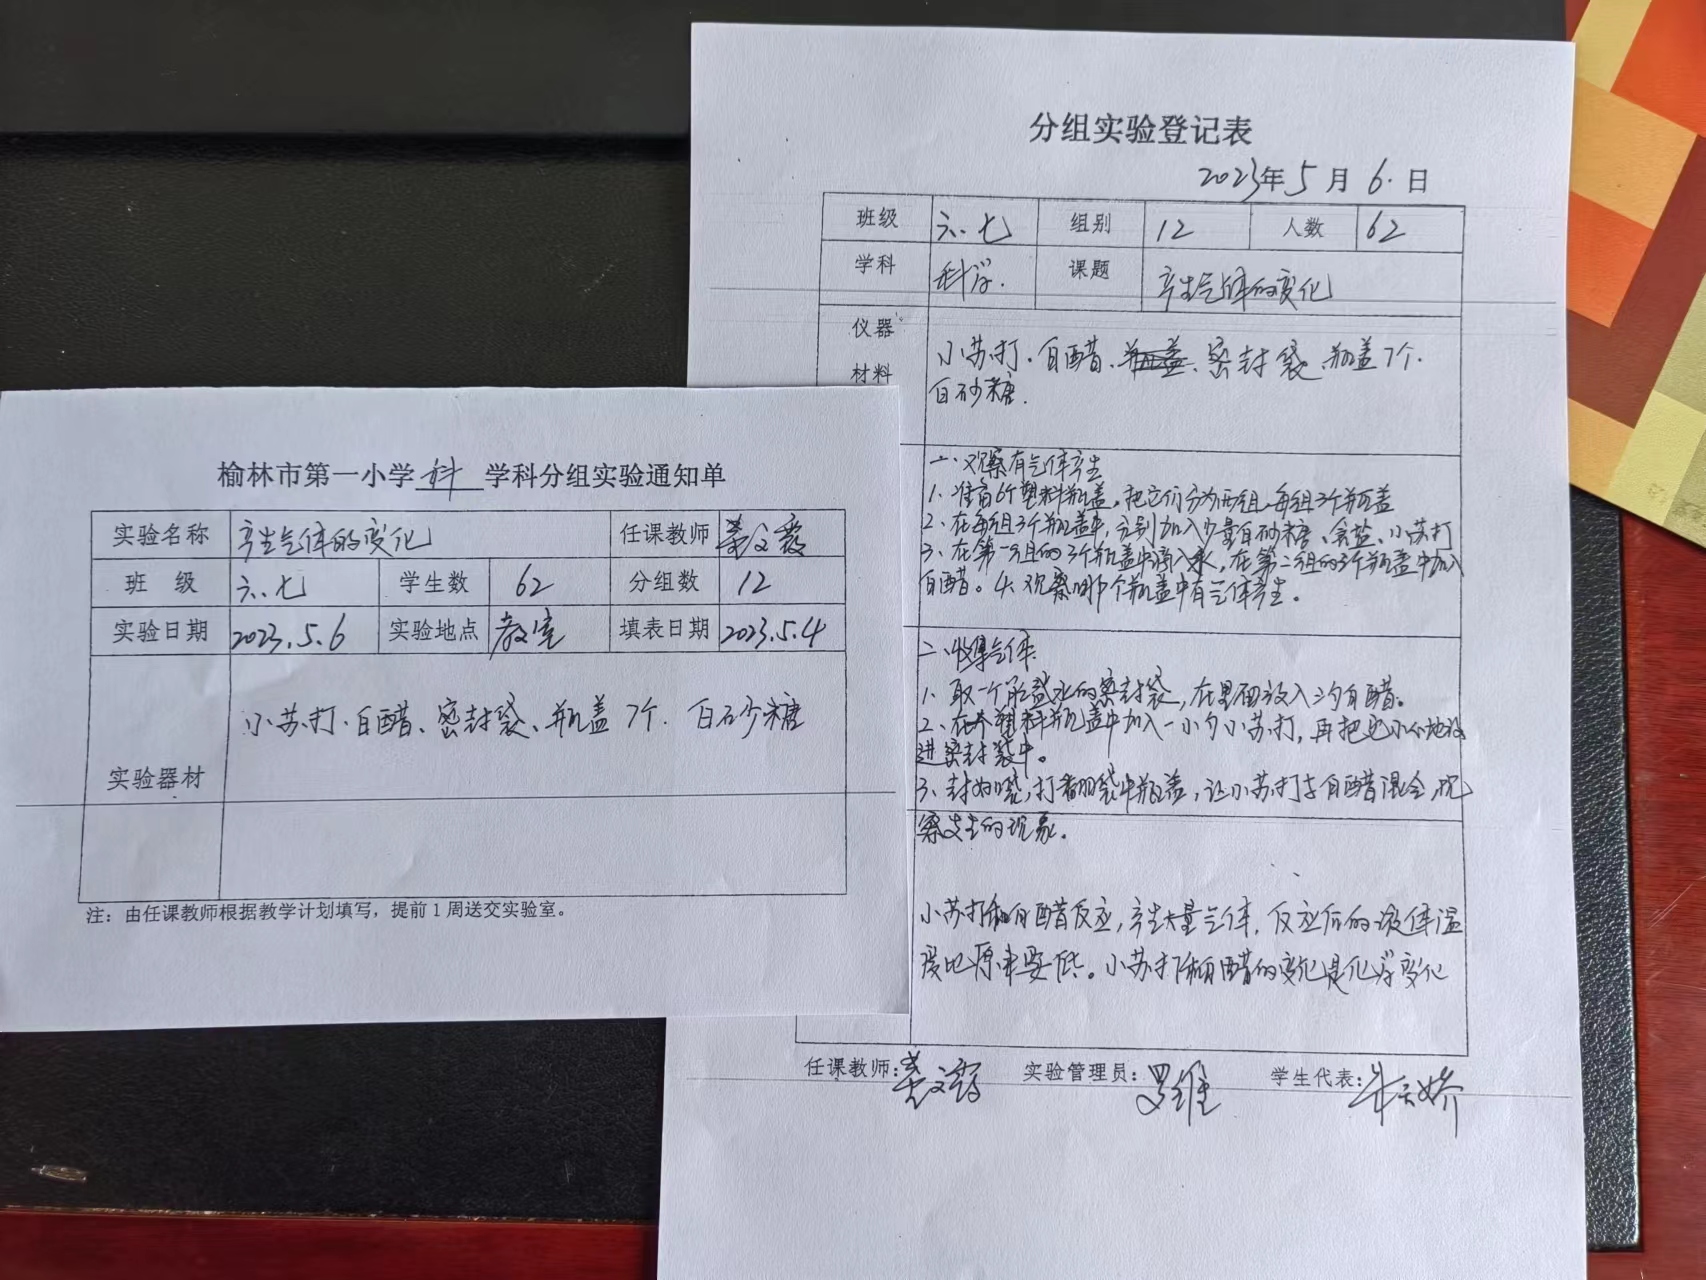 分组实验登记表
2023年5月6.日
班级 六.七 组别 12 人数 62
学科 科学. 课题 产生气体的变化
仪器
材料
小苏打.白醋、密封袋、瓶盖7个.
白砂糖.
一.观察有气体产生
1、准备6个塑料瓶盖,把它们分为两组,每组3个瓶盖
2、在每组3个瓶盖中,分别加入少量白砂糖、食盐、小苏打
3、在第一组的3个瓶盖中滴入水,在第二组的3个瓶盖中加入
白醋。4、观察哪个瓶盖中有气体产生。
二、收集气体
1、取一个能盛水的密封袋,在里面放入三勺白醋。
2、在塑料瓶盖中加入一小勺小苏打,再把它小心地放
进密封袋中。
3、封好袋,打翻袋中瓶盖,让小苏打与白醋混合,观
察发生的现象。
小苏打和白醋反应,产生大量气体,反应后的液体温
度比原来要低。小苏打和白醋的变化是化学变化
任课教师: 实验管理员:罗维 学生代表:
榆林市第一小学 科 学科分组实验通知单
实验名称 产生气体的变化 任课教师
班 级 六.七 学生数 62 分组数 12
实验日期 2023.5.6 实验地点 教室 填表日期 2023.5.4
实验器材 小苏打.白醋、密封袋、瓶盖7个. 白砂糖
注:由任课教师根据教学计划填写,提前1周送交实验室。